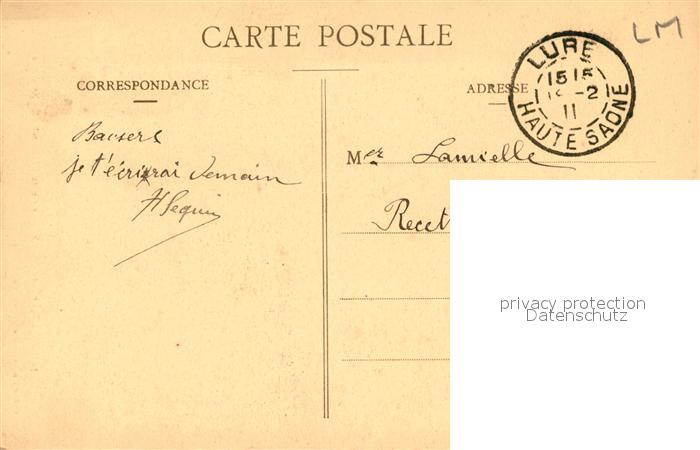 CARTE POSTALE
LM
CORRESPONDANCE
ADRESSE
LURE
15 15
-2
11
HAUTE SAONE
Baisers
je t'écrirai demain
HSequin
Mer Lamielle
Recet
privacy protection
Datenschutz